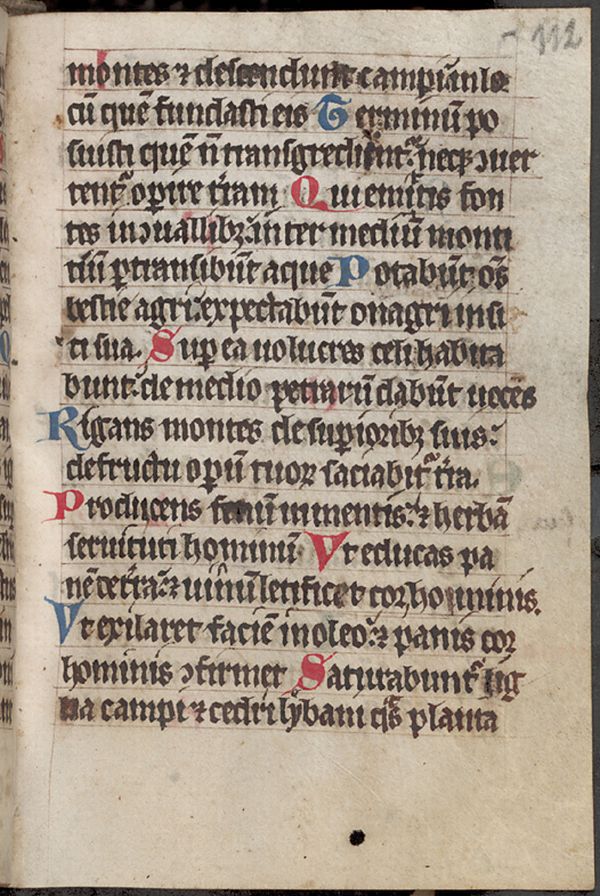 112
montes ⁊ descendunt campi ı̄ nlo
cū quē fundasti eis Terminū po
suisti quē n̄ transgredientᷣ neqꝫ ↄuer
tentᷣ oꝑire t̄ram Qui emittis fon
tes in ↄuallibꝫ: inter mediū monti
tiū ꝑtransibūt aque Potabūt oēs
bestie agri: expectabūt onagri in si
ti sua. Suꝑ ea uolucres celi habita
bunt: de medio petrarū dabūt uoces
Rigans montes de suꝑioribꝫ suis:
de fructu oꝑū tuoꝝ saciabitᷣ t̄ra.
Producens fenū iumentis: ⁊ herbā
seruituti hominū Vt educas pa
nē de t̄ra: ⁊ uinū letificet cor hominis.
Vt exilaret faciē in oleo: ⁊ panis cor
hominis ↄfirmet Saturabuntᷣ lig
na campi ⁊ cedri lybani qͣs planta